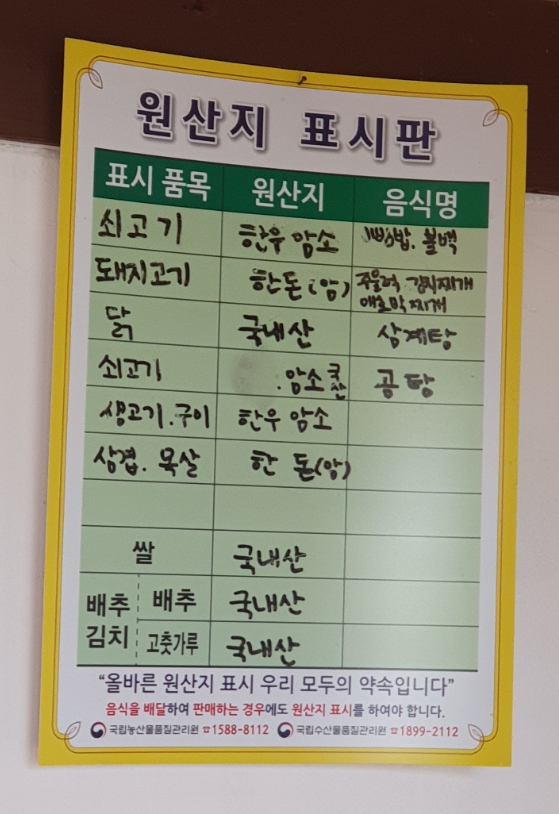 원산지 표시판
표시 품목 원산지 음식명
쇠고기 한우 암소 비빔밥. 불백
돼지고기 한돈(암) 주물럭 김치찌개
애호박찌개
닭 국내산 삼계탕
쇠고기 .암소 국산 곰탕
생고기.구이 한우 암소
삼겹. 목살 한돈(암)
쌀 국내산
배추김치 배추 국내산
고춧가루 국내산
“올바른 원산지 표시 우리 모두의 약속입니다”
음식을 배달하여 판매하는 경우에도 원산지 표시를 하여야 합니다.
국립농산물품질관리원 ☎1588-8112 국립수산물품질관리원 ☎1899-2112